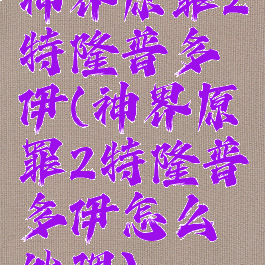 神界原罪2
特隆普多
伊(神界原
罪2特隆普
多伊怎么